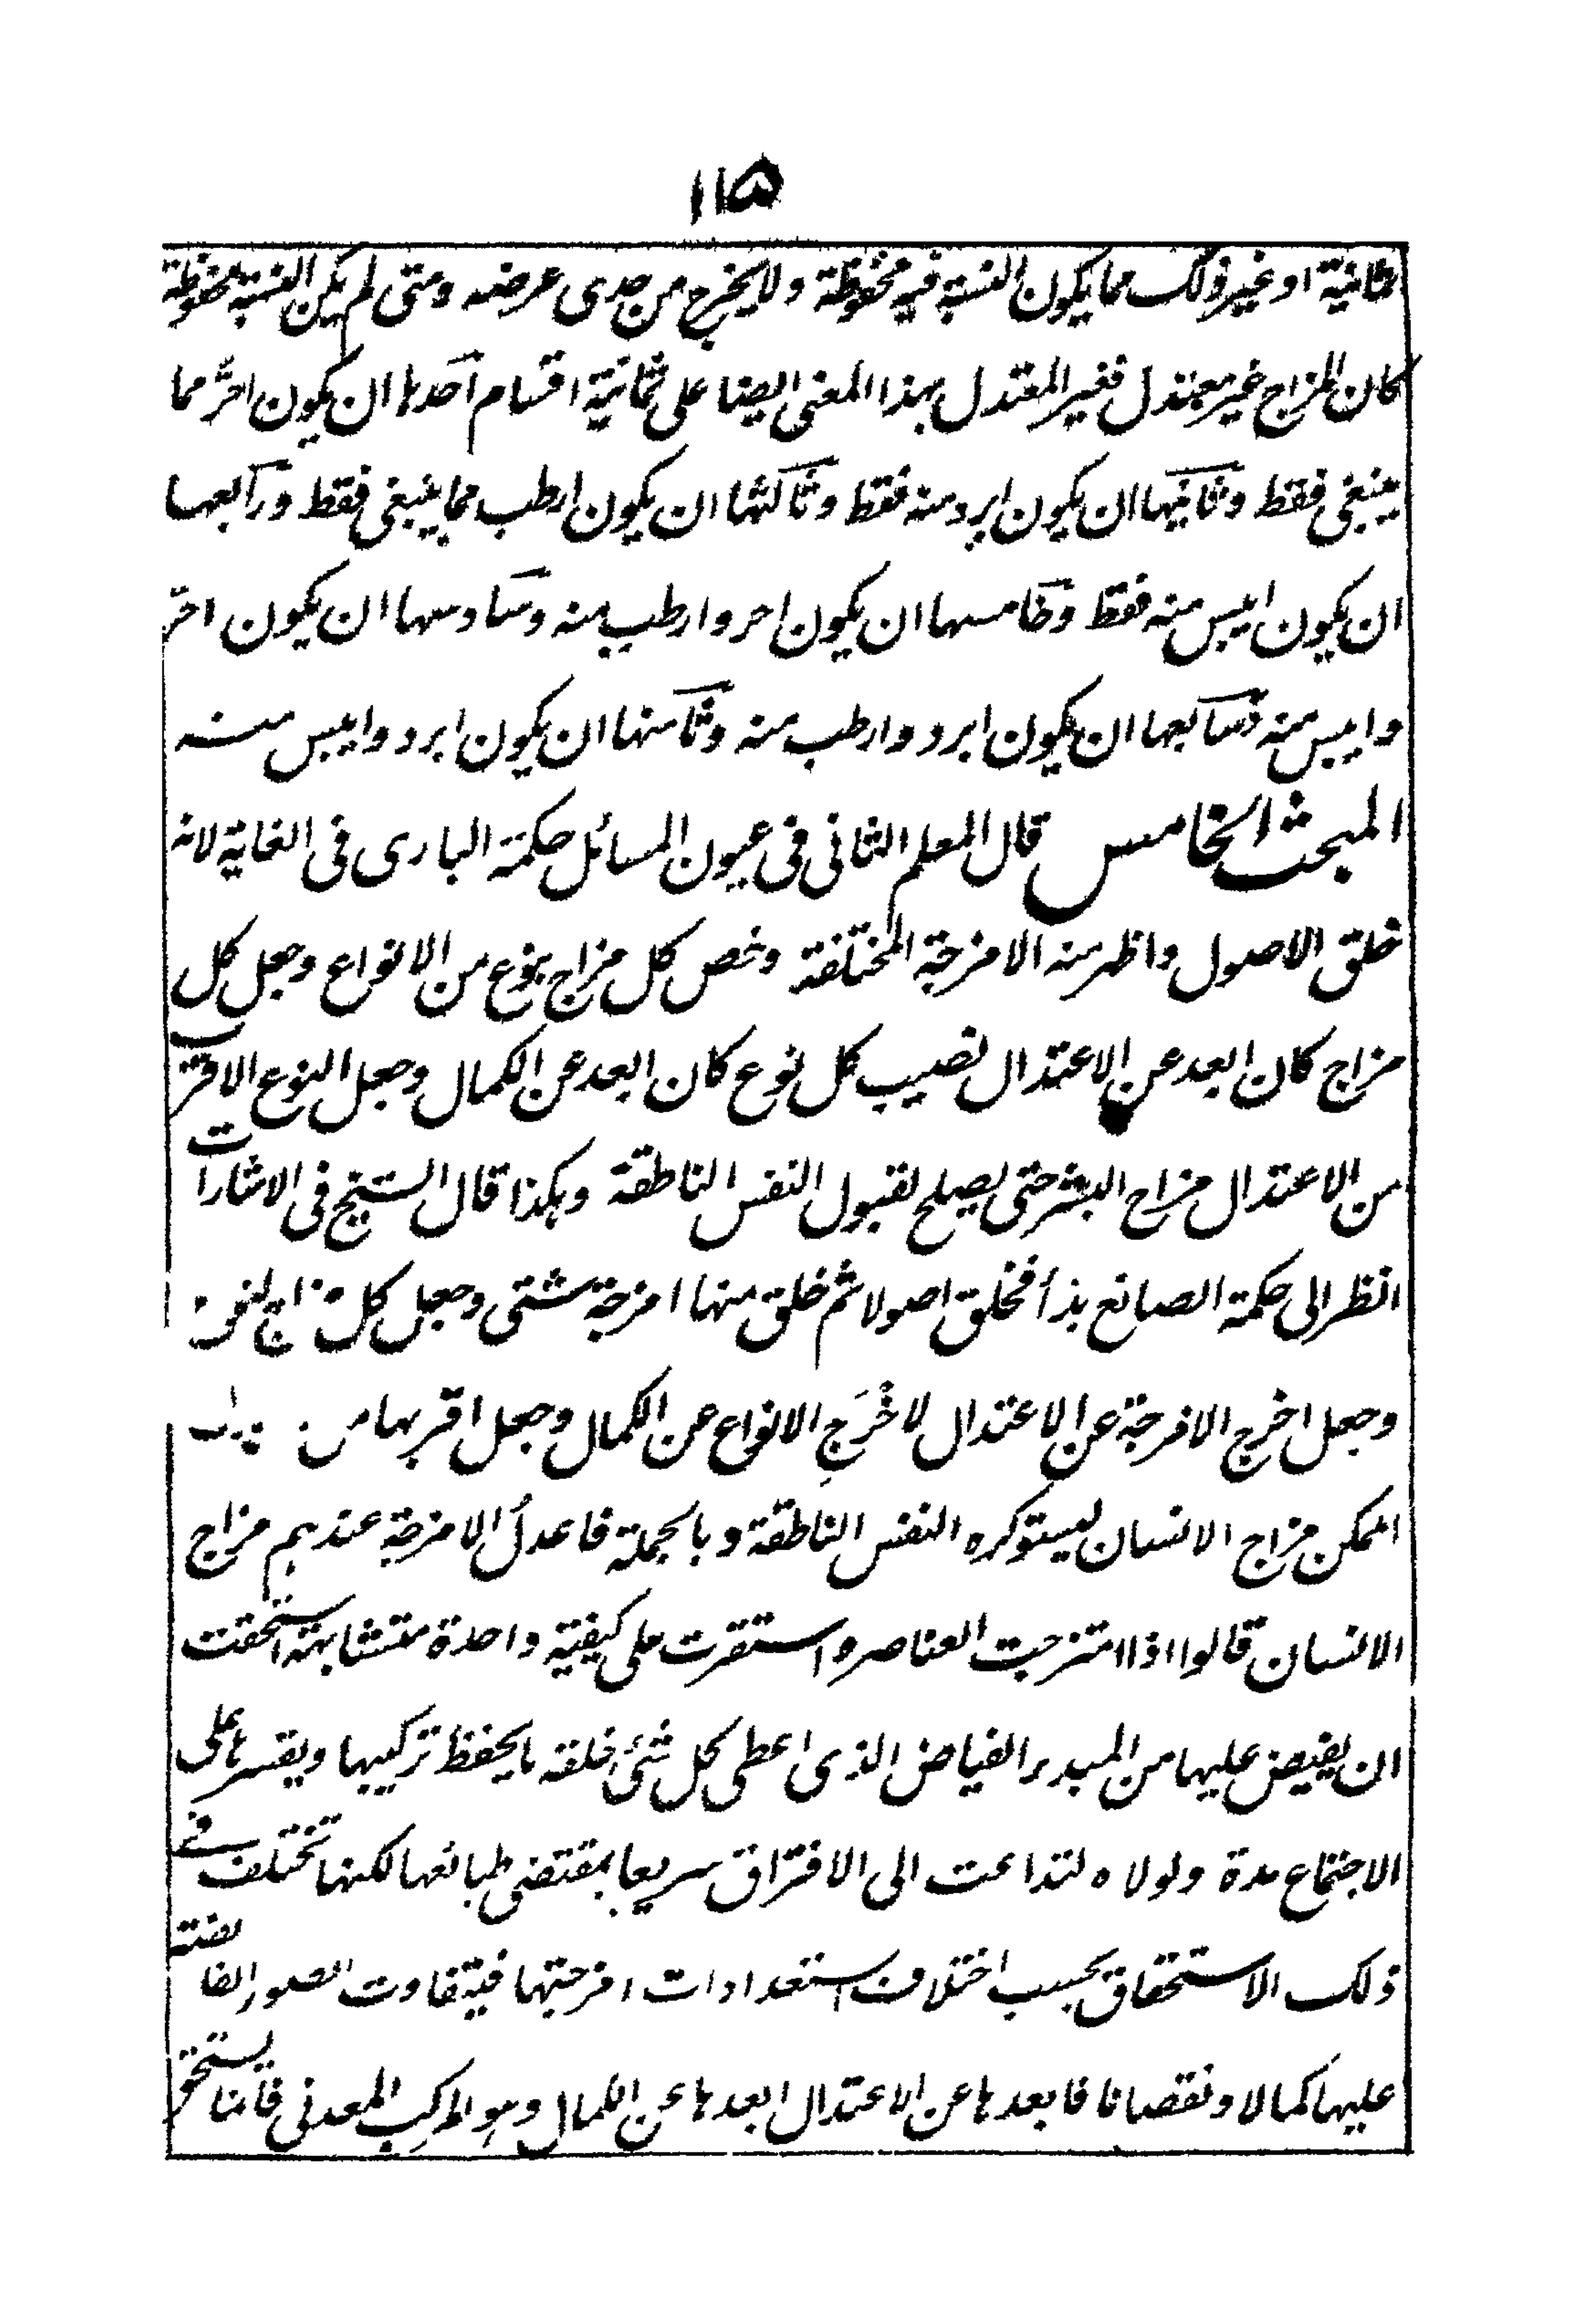 ١١٥
ثمانية او غير ذلك مما يكون النسبة فيه محفوظة ولا يخرج من حدى عرضه ومتى لم يكن النسبة محفوظة
كان المزاج غير معتدل فغير المعتدل بهذا المعنى ايضا على ثمانية اقسام احدها ان يكون احرَّ مما
ينبغى فقط وثانيها ان يكون ابرد منه فقط وثالثها ان يكون ارطب مما ينبغى فقط ورابعها
ان يكون ايبس منه فقط وخامسها ان يكون احر وارطب منه وسادسها ان يكون احرّ
وايبس منه وسابعها ان يكون ابرد وارطب منه وثامنها ان يكون ابرد وايبس منه
المبحث الخامس قال المعلم الثانى فى عيون المسائل حكمة البارى فى الغاية لانه
خلق الاصول واظهر منه الامزجة المختلفة وخص كل مزاج بنوع من الانواع وجعل كل
مزاج كان ابعد عن الاعتدال نصيب كل نوع كان ابعد عن الكمال وجعل النوع الاقرب
من الاعتدال مزاج البشر حتى يصلح لقبول النفس الناطقة وهكذا قال الشيخ فى الاشارات
انظر الى حكمة الصانع بدأ فخلق اصولا ثم خلق منها امزجة شتى وجعل كل مزاج لنوع
وجعل اخرج الامزجة عن الاعتدال لاخْرَجِ الانواع عن الكمال وجعل اقربها من
الممكن مزاج الانسان ليستوكره النفس الناطقة وبالجملة فاعدلُ الامزجة عندهم مزاج
الانسان قالوا اذا امتزجت العناصر واستقرت على كيفية واحدة متشابهة استحقت
ان يفيض عليها من المبدء الفياض الذى اعطى لكل شئ خلقه ما يحفظ تركيبها ويقسرها على
الاجتماع مدة ولولاه لتداعت الى الافتراق سريعا بمقتضى طبائعها لكنها تختلف فى
ذلك الاستحقاق بحسب اختلاف استعدادات امزجتها فيتفاوت الصور الفائضة
عليها كمالا ونقصانا فابعدها عن الاعتدال ابعدها عن الكمال وهو المركب المعدنى فانما يستحق